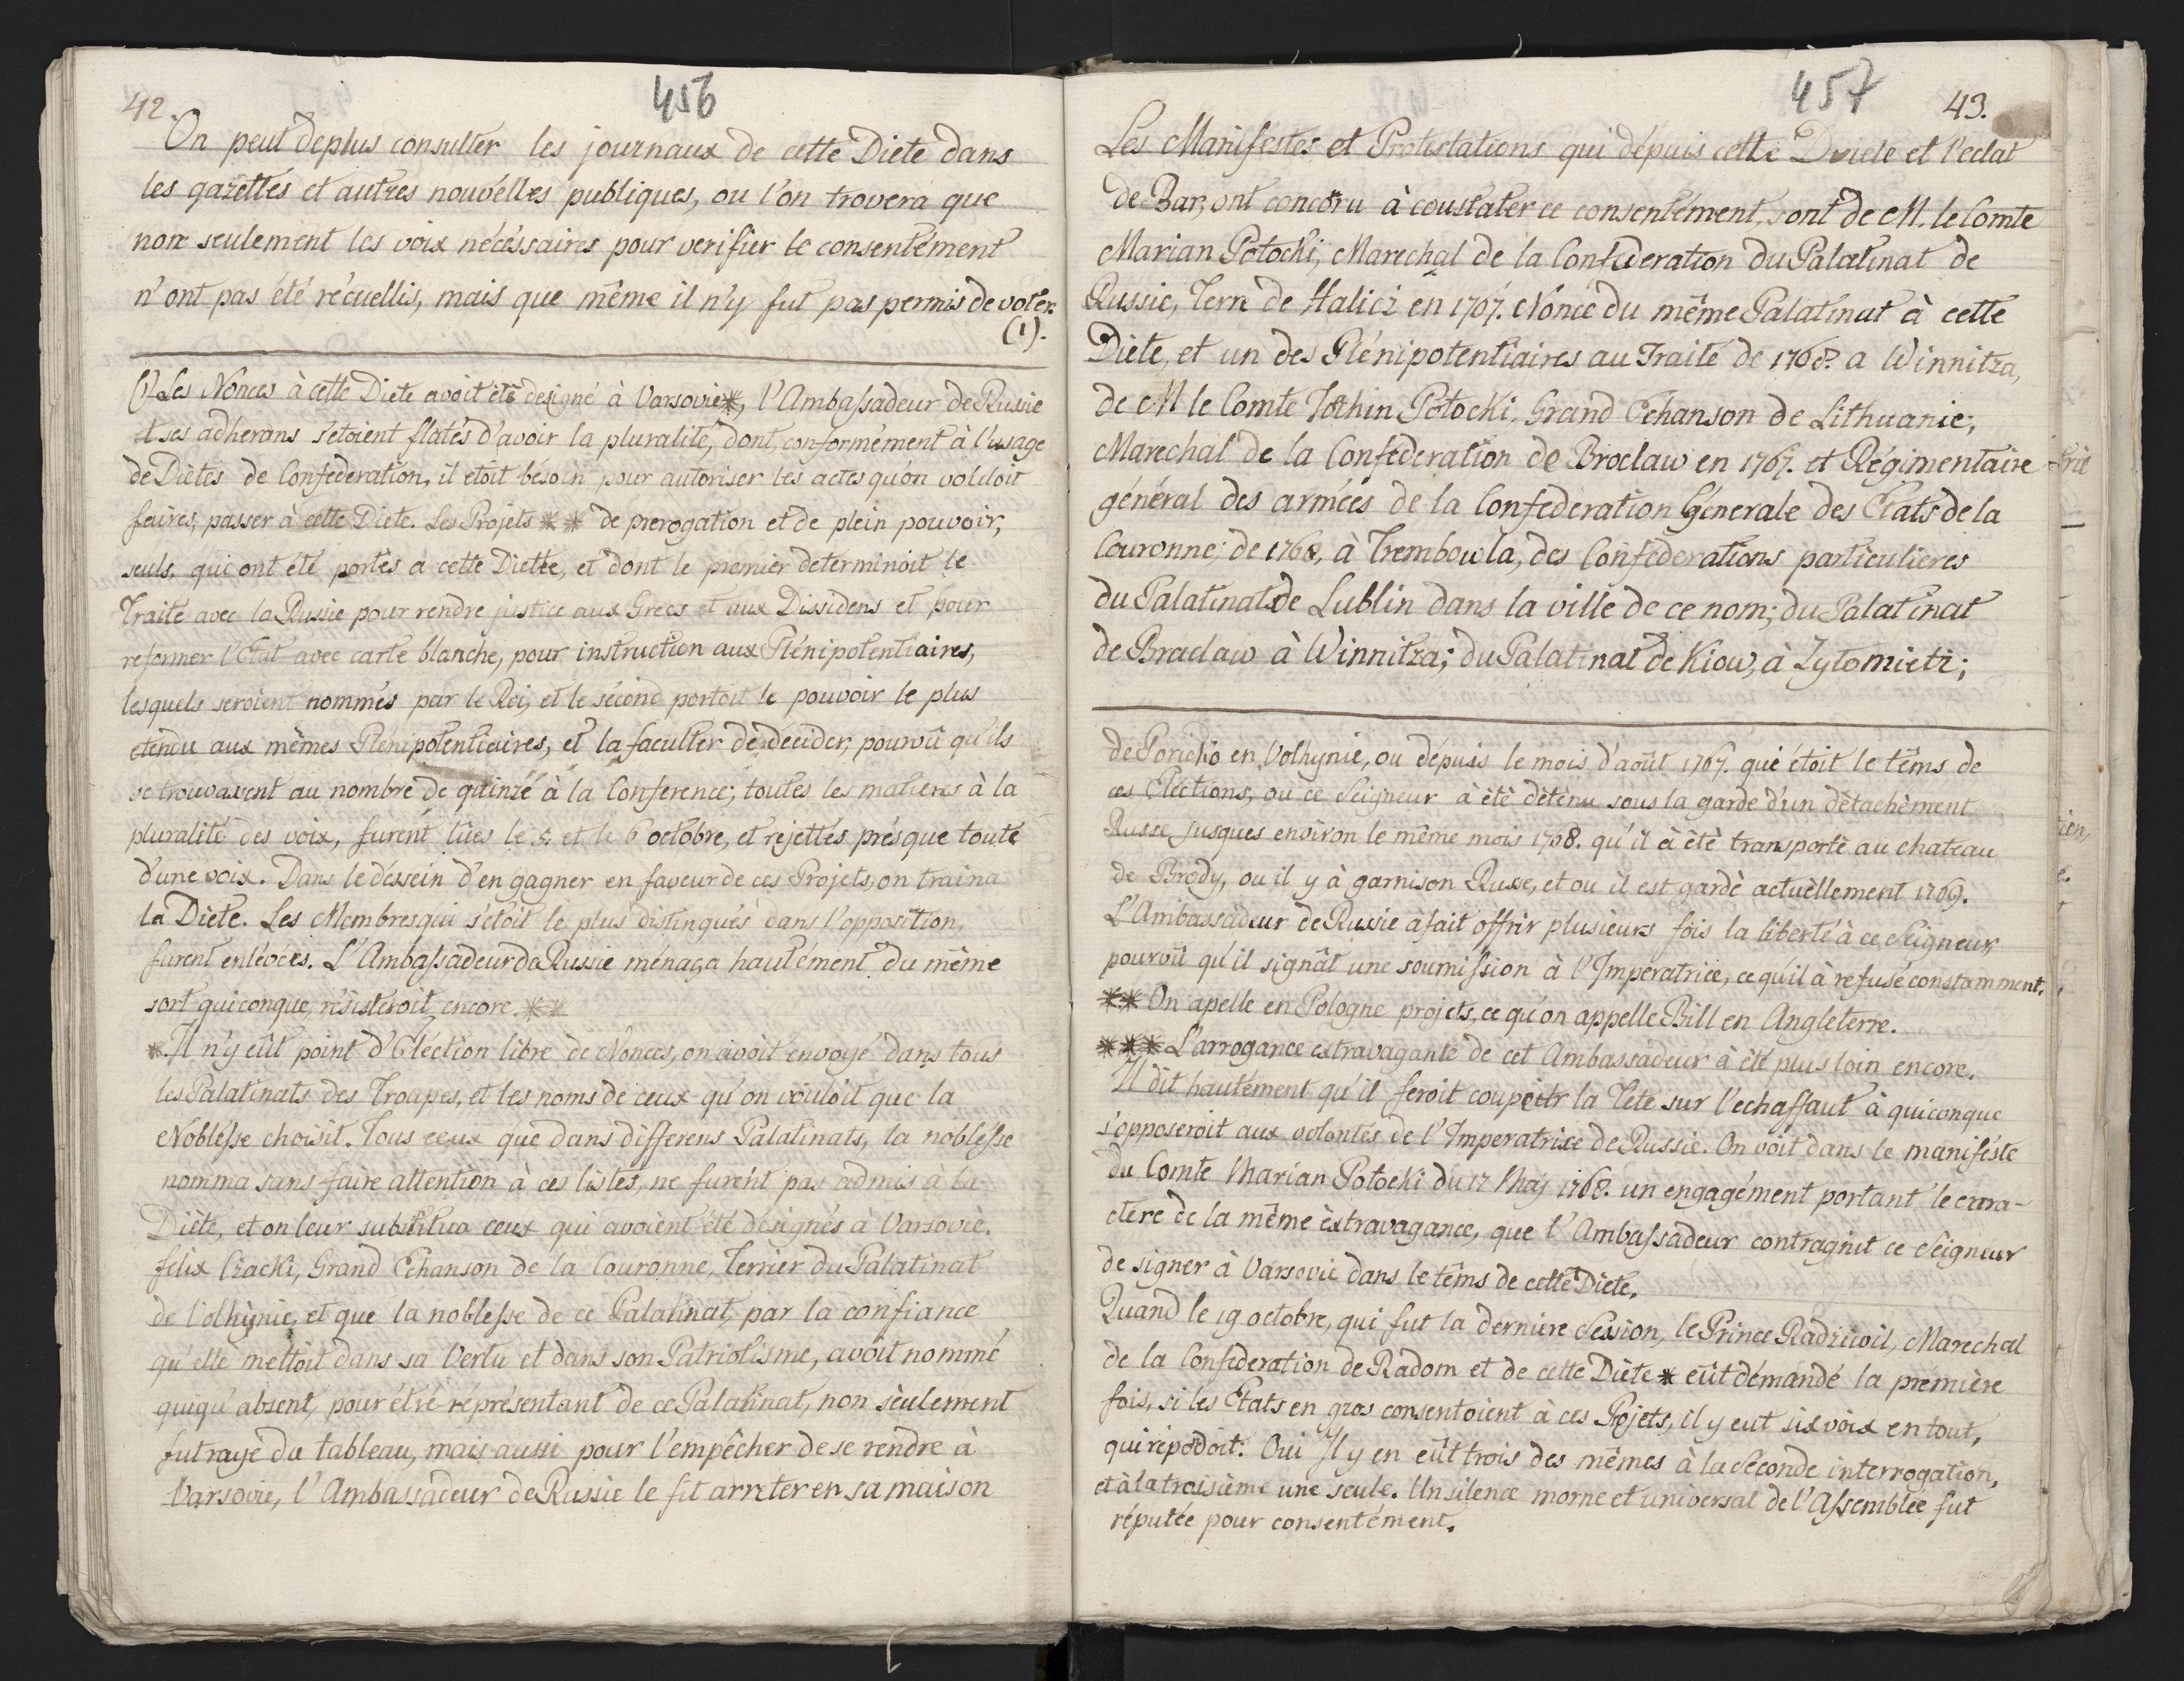 42.
456
On peut deplus consulter les journaux de cette Diete dans
les gazettes et autres nouvélles publiques, ou l'on trovera que
non seulement les voix nécéssaires pour verifier le consentément
n'ont pas été récuellis, mais que même il n'y fut pas permis de voter.
(1).
(1) Les Nonces à cette Diete avoit été designé à Varsovie*, l'Ambassadeur de Russie
et ses adhérans s'etoient flatés d'avoir la pluralité, dont, conformément à l'usage
de Diètes de Confederation, il etoit bésoin pour autoriser les actes qu'on vouloit
faires, passer à cette Diete. Les Projets ** de prerogation et de plein pouvoir,
seuls, qui ont été portés a cette Diette, et dont le premier determinoit le
Traité avec la Russie pour rendre justice aux Grecs et aux Dissidens et pour
reformer l'Etat avec carte blanche, pour instruction aux Plénipotentiaires,
lesquels seroient nommés par le Roi, et le sécond portoit le pouvoir le plus
etendu aux mêmes Plénipotentiaires, et la faculter de decider, pourvû qu'ils
se trouvassent au nombre de quinze à la Conference; toutes les matieres à la
pluralité des voix, furent lûes le 5. et le 6 octobre, et rejettés présque toute
d'une voix. Dans le dessein d'en gagner en faveur de ces Projets, on traina
la Diète. Les Membres qui s'étoit le plus distingués dans l'opposition,
furent enlévées. L'Ambassadeur de Russie ménaça hautément du même
sort quiconque résisteroit encore **
*. Il n'y eût point d'Eléction libre de Nonces, on avoit envoyé dans tous
les Palatinats des Troupes, et les noms de ceux qu'on vouloit que la
Noblesse choisit. Tous ceux que dans differens Palatinats, la noblesse
nomma sans faire attention à ces listes, ne furént pas admis à la
Diète, et on leur substitua ceux qui avoient été designés à Varsovie.
felix Czacki, Grand Echanson de la Couronne, Terrier du Palatinat
de Volhynie, et que la noblesse de ce Palatinat, par la confiance
qu'elle mettoit dans sa Vertu et dans son Patriotisme, avoit nommé
quiqu' absent, pour étré réprésentant de ce Palatinat, non sèulement
fut rayé du tableau, mais aussi pour l'empêcher de se rendre à
Varsovie, l'Ambassadeur de Russie le fit arreter en sa maison
457
43.
Les Manifestes et Protestations qui dépuis cette Diete et l'eclat
de Bar, ont concoru à coustater ce consentément, sont de M. le Comte
Marian Potocki, Marechal de la Confederation du Palatinat de
Russie, Terre de Halicz en 1767. Nonce du même Palatinat à cette
Diète, et un des Plénipotentiaires au Traité de 1768. a Winnitza,
de M le Comte Jochin Potocki, Grand Echanson de Lithuanie,
Marechal de la Confederation de Broclaw en 1767. et Régimentaire
général des armées de la Confederation Génerale des Etats de la
Couronne; de 1768, à Trembowla, des Confédérations particulieres
du Palatinat de Lublin dans la ville de ce nom; du Palatinat
de Braclaw à Winnitza; du Palatinat de Kiow, à Zytomietz;
de Porickio en Volhynie, ou dépuis le mois d'août 1767. qui étoit le têms de
ces Eléctions, ou ce Seigneur à été déténu sous la garde d'un détachément
Russe, jusques environ le même mois 1768. qu'il à été transporté au chateau
de Brody, ou il y à garnison Russe, et ou il est gardé actuèllement 1769.
L'Ambassadeur de Russie à fait offrir plusieurs fois la liberté à ce Seigneur,
pourvû qu'il signât une soumission à l'Imperatrice, ce qu'il à refusé constamment.
** On apelle en Pologne projets, ce qu'on appelle Bill en Angleterre.
*** L'arrogance extravagante de cet Ambassadeur à été plus loin encore.
Il dit hautément qu'il feroit coupeer la Tête sur l'echaffaut à quiconque
s'opposeroit aux volontés de l'Imperatrise de Russie. On voit dans le maniféste
du Comte Marian Potocki du 17 Maj 1768. un engagément portant le cara-
ctere de la même èxtravagance, que l'Ambassadeur contragnit ce Seigneur
de signer à Varsovie dans le têms de cette Diete.
Quand le 19 octobre, qui fut la derniere Session, le Prince Radziwil, Marechal
de la Confederation de Radom et de cette Diète * eût démandé la première
fois, si les Etats en gros consentoient à ces Projets, il y eut six voix en tout,
qui répodoit: Oui Il y en eût trois des mêmes à la Séconde interrogation,
et à la troisième une seule. Un silence morne et universal de l'Assemblée fut
réputée pour consentément.